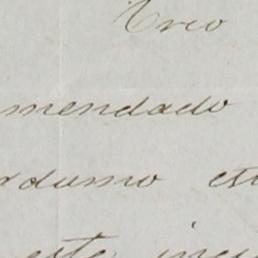 Creo
mendado
rdumo est
este